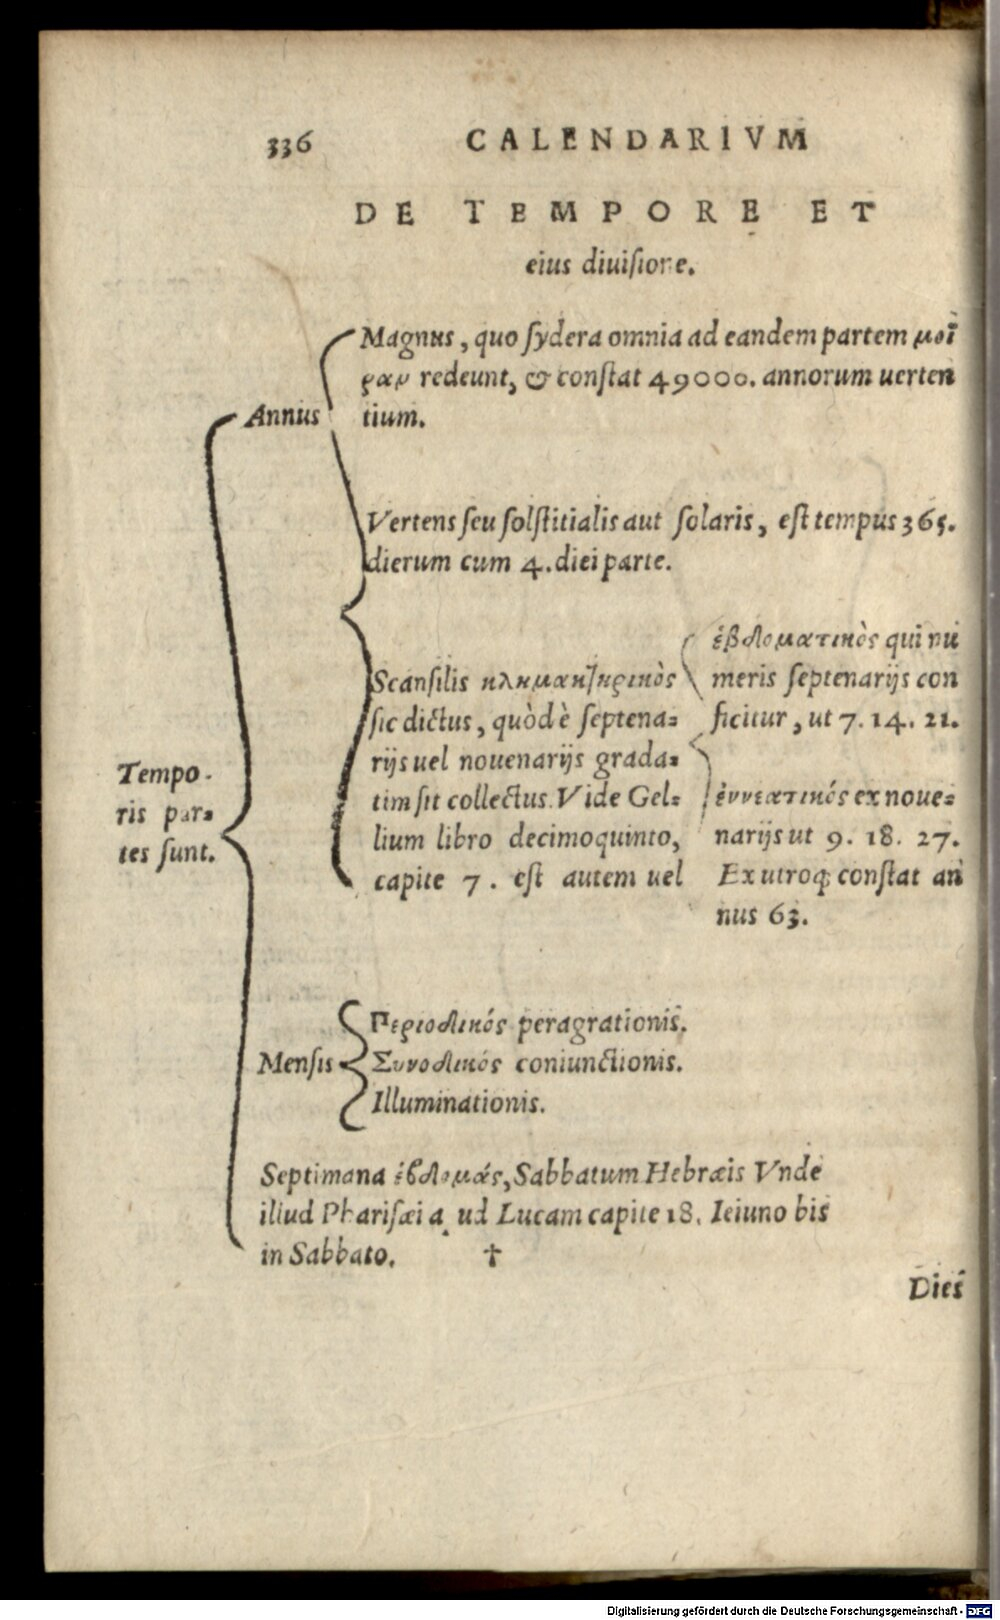 336 CALENDARIVM
DE TEMPORE ET
eius diuisione.
Magnus, quo sydera omnia ad eandem partem μοῖ
ραν redeunt, & constat 49000. annorum uerten
tium.
Annus
Vertens seu solstitialis aut solaris, est tempus 365.
dierum cum 4. diei parte.
Scansilis κλημακτηρικὸς
sic dictus, quòd è septena=
rijs uel nouenarijs grada=
tim sit collectus. Vide Gel=
lium libro decimoquinto,
capite 7. est autem uel
ἑβδοματικὸς qui nu
meris septenarijs con
ficitur, ut 7. 14. 21.
ἐννεατικός ex noue=
narijs ut 9. 18. 27.
Ex utroq; constat an
nus 63.
Tempo-
ris par=
tes sunt.
Mensis
Περιοδικός peragrationis.
Συνοδικός coniunctionis.
Illuminationis.
Septimana ἑβδομάς, Sabbatum Hebræis Vnde
illud Pharisæi a ud Lucam capite 18. Ieiuno bis
in Sabbato. †
Dies
Digitalisierung gefördert durch die Deutsche Forschungsgemeinschaft - DFG